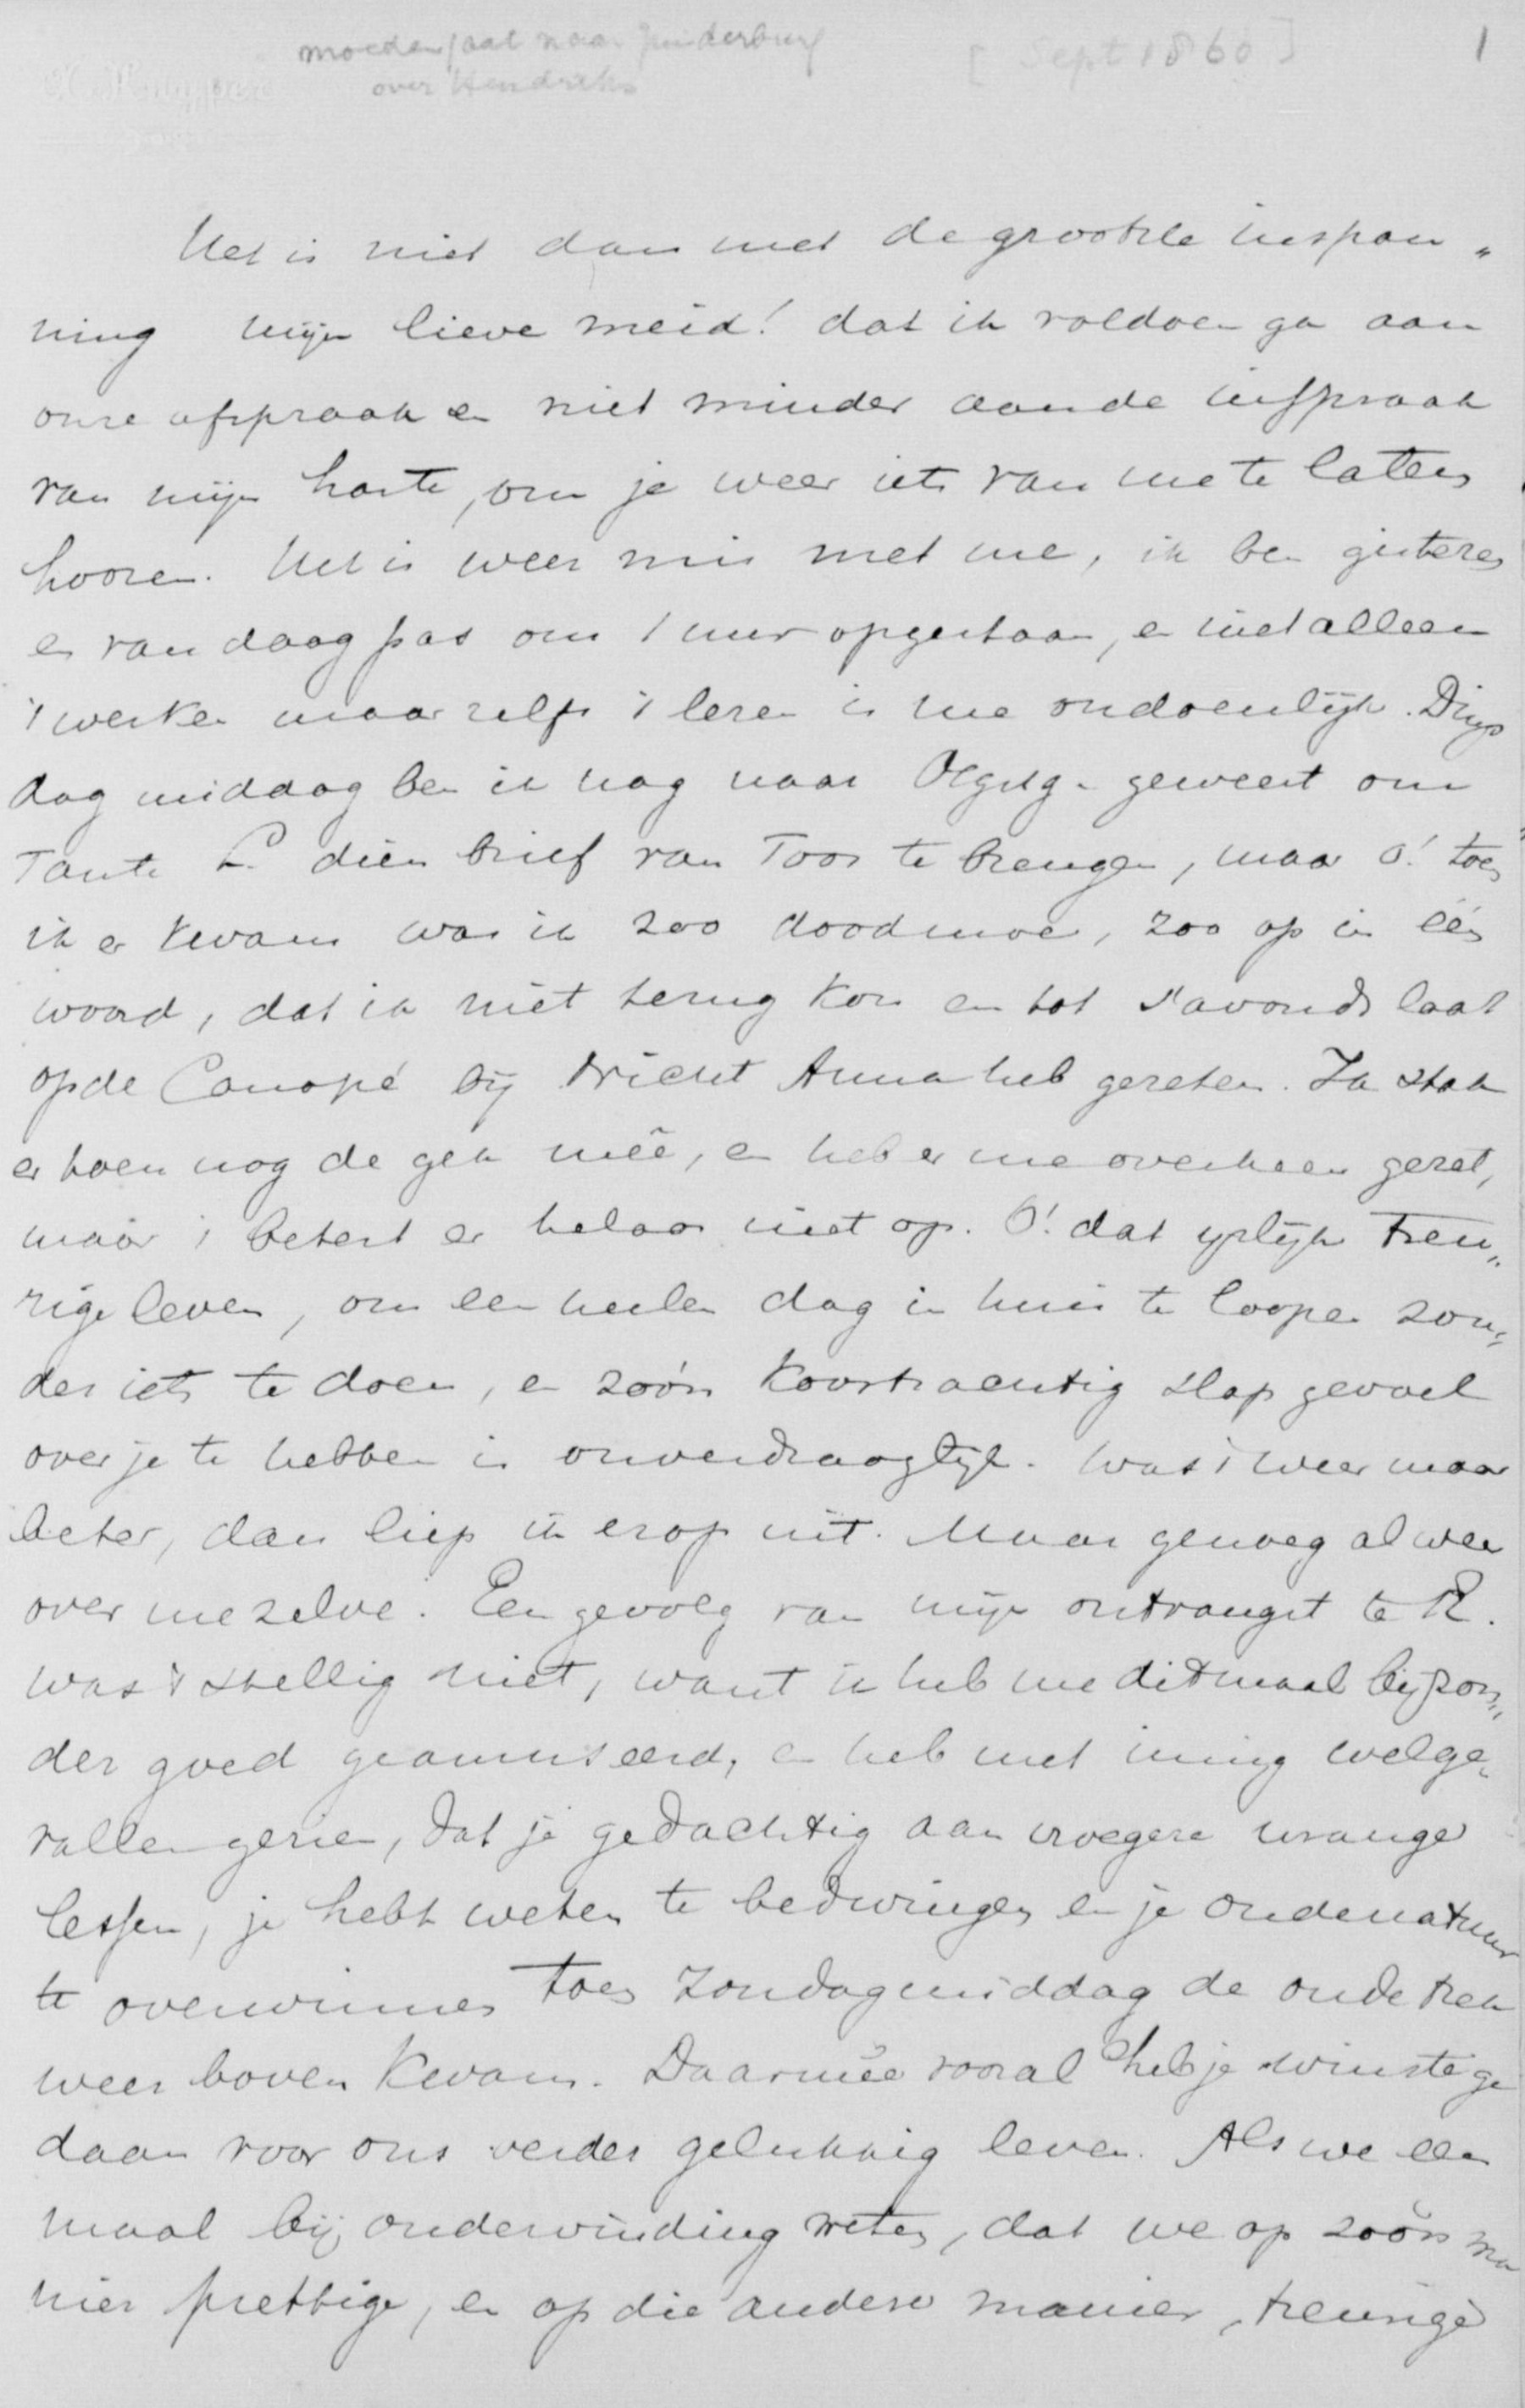 moeder gaat naar
over Hendriks
[Sept 1860]
1
Het is niet dan met de grootste inspan„
ning mijn lieve meid! dat ik voldoen ga aan
onze afspraak en niet minder aan de inspraak
van mijn harte, om je weer iets van me te laten
hooren. Het is weer mis met me, ik ben gisteren
en van daag pas om 1 uur opgestaan, en niet alleen
't werken maar zelfs 't lezen is me ondoenlijk. Dings
dag middag ben ik nog naar Oegstg. geweest om
Tante L. dien brief van Toos te brengen, maar o! toen
ik er kwam was ik zoo doodmoe, zoo op in één
woord, dat ik niet terug kon en tot s'avonds laat
op de Canapé bij Nicht Anna heb gezeten. Ik stak
er toen nog de gek meê, en heb er me overheen gezet,
maar 't betert er helaas niet op. O! dat ijslijk treu„
rige leven, om een heelen dag in huis te loopen zon„
der iets te doen, en zoo'n koortsachtig slap gevoel
over je te hebben is onverdraaglijk. Was 't weer maar
beter, dan liep ik erop uit. Maar genoeg al weer
over mezelve. Een gevolg van mijn ontvangst te R.
was 't stellig niet, want ik heb me ditmaal bijzon„
der goed geamuseerd, en heb met innig welge„
vallen gezien, dat je gedachtig aan vroegere wrange
lessen, je hebt weten te bedwingen en je oude natuur
te overwinnen toen Zondagmiddag de oude trek
weer boven kwam. Daarmeê vooral heb je winste ge
daan voor ons verder gelukkig leven. Als we een
maal bij ondervinding weten, dat we op zoo'n ma
nier prettige, en op die andere manier, treurige